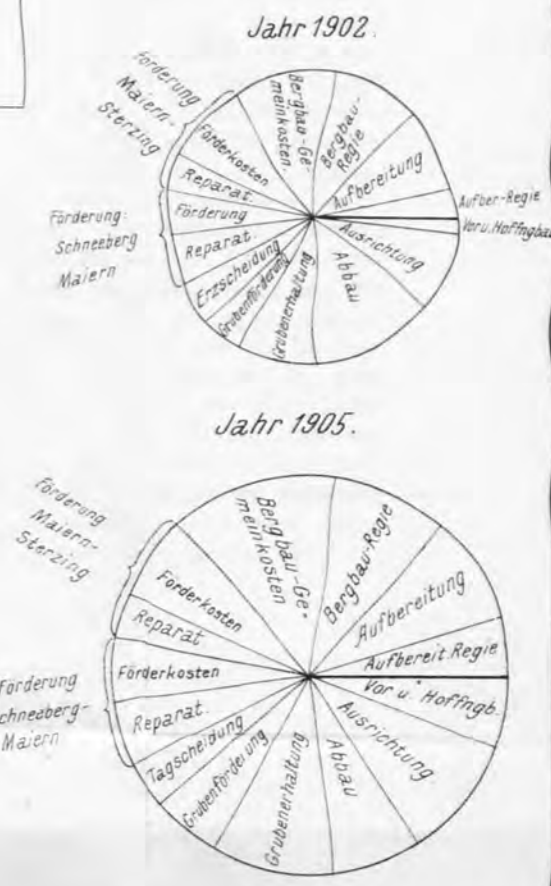 Jahr 1902.
Förderung
Maiern-
Sterzing
Förderung:
Schneeberg
Maiern
Bergbau-Ge-
meinkosten.
Bergbau-
Regie
Aufbereitung
Aufber-Regie
Voru.Hoffngbau
Ausrichtung
Abbau
Grubenerhaltung
Grubenförderung
Erzscheidung
Reparat.
Förderung
Reparat.
Förderkosten
Jahr 1905.
Förderung
Maiern-
Sterzing
Förderung
chneeberg-
Maiern
Bergbau-Ge-
meinkosten
Bergbau-Regie
Aufbereitung
Aufbereit.Regie
Vor u. Hoffngb.
Ausrichtung
Abbau
Grubenerhaltung
Grubenförderung
Tagscheidung
Reparat.
Förderkosten
Reparat
Förderkosten